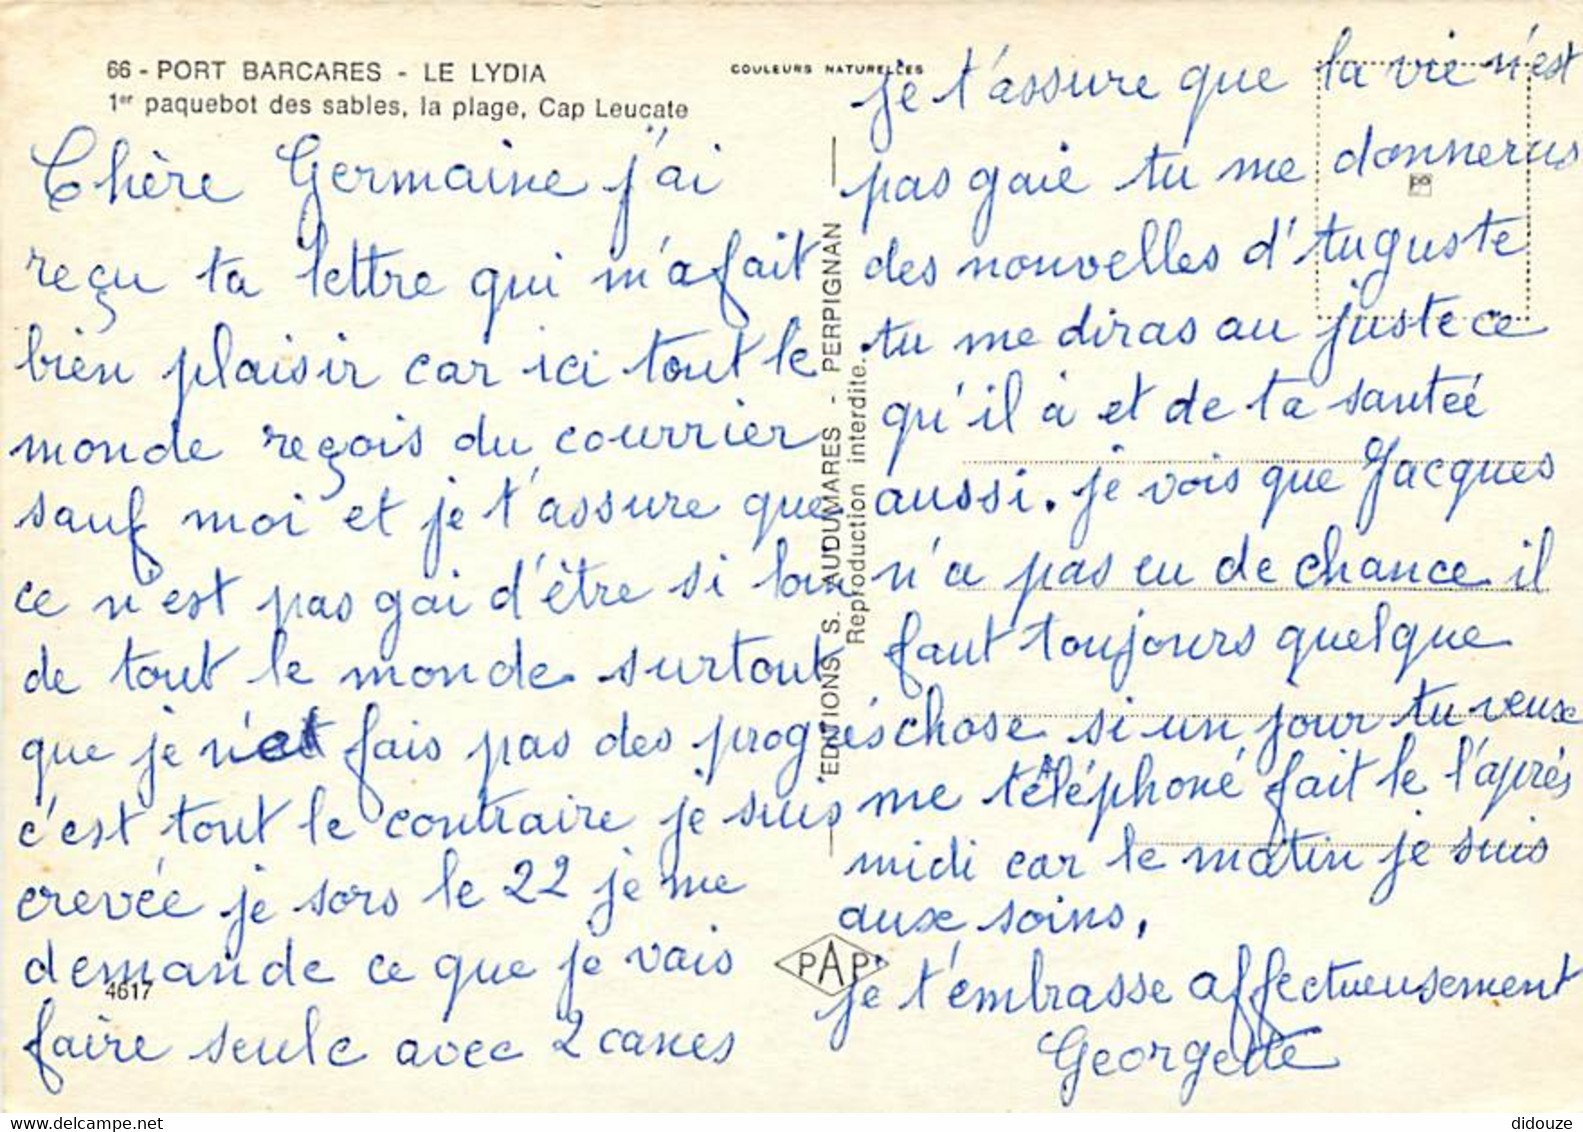 66 - PORT BARCARES - LE LYDIA
1er paquebot des sables, la plage, Cap Leucate
COULEURS NATURELLES
Chère Germaine j'ai
reçu ta lettre qui m'a fait
bien plaisir car ici tout le
monde reçois du courrier
sauf moi et je t'assure que
ce n'est pas gai d'être si loin
de tout le monde surtout
que je fais pas des progrés
c'est tout le contraire je suis
crevée je sors le 22 je me
demande ce que je vais
faire seule avec 2 canes
4617
EDITIONS S. AUDUMARES - PERPIGNAN
Reproduction interdite.
PAP
je t'assure que la vie n'est
pas gaie tu me donneras
des nouvelles d'Auguste
tu me diras au juste ce
qu'il à et de ta santéé
aussi. je vois que Jacques
n'a pas eu de chance il
faut toujours quelque
chose si un jour tu veux
me téléphoné fait le l'après
midi car le matin je suis
aux soins.
je t'embrasse affectueusement
Georgette
didouze